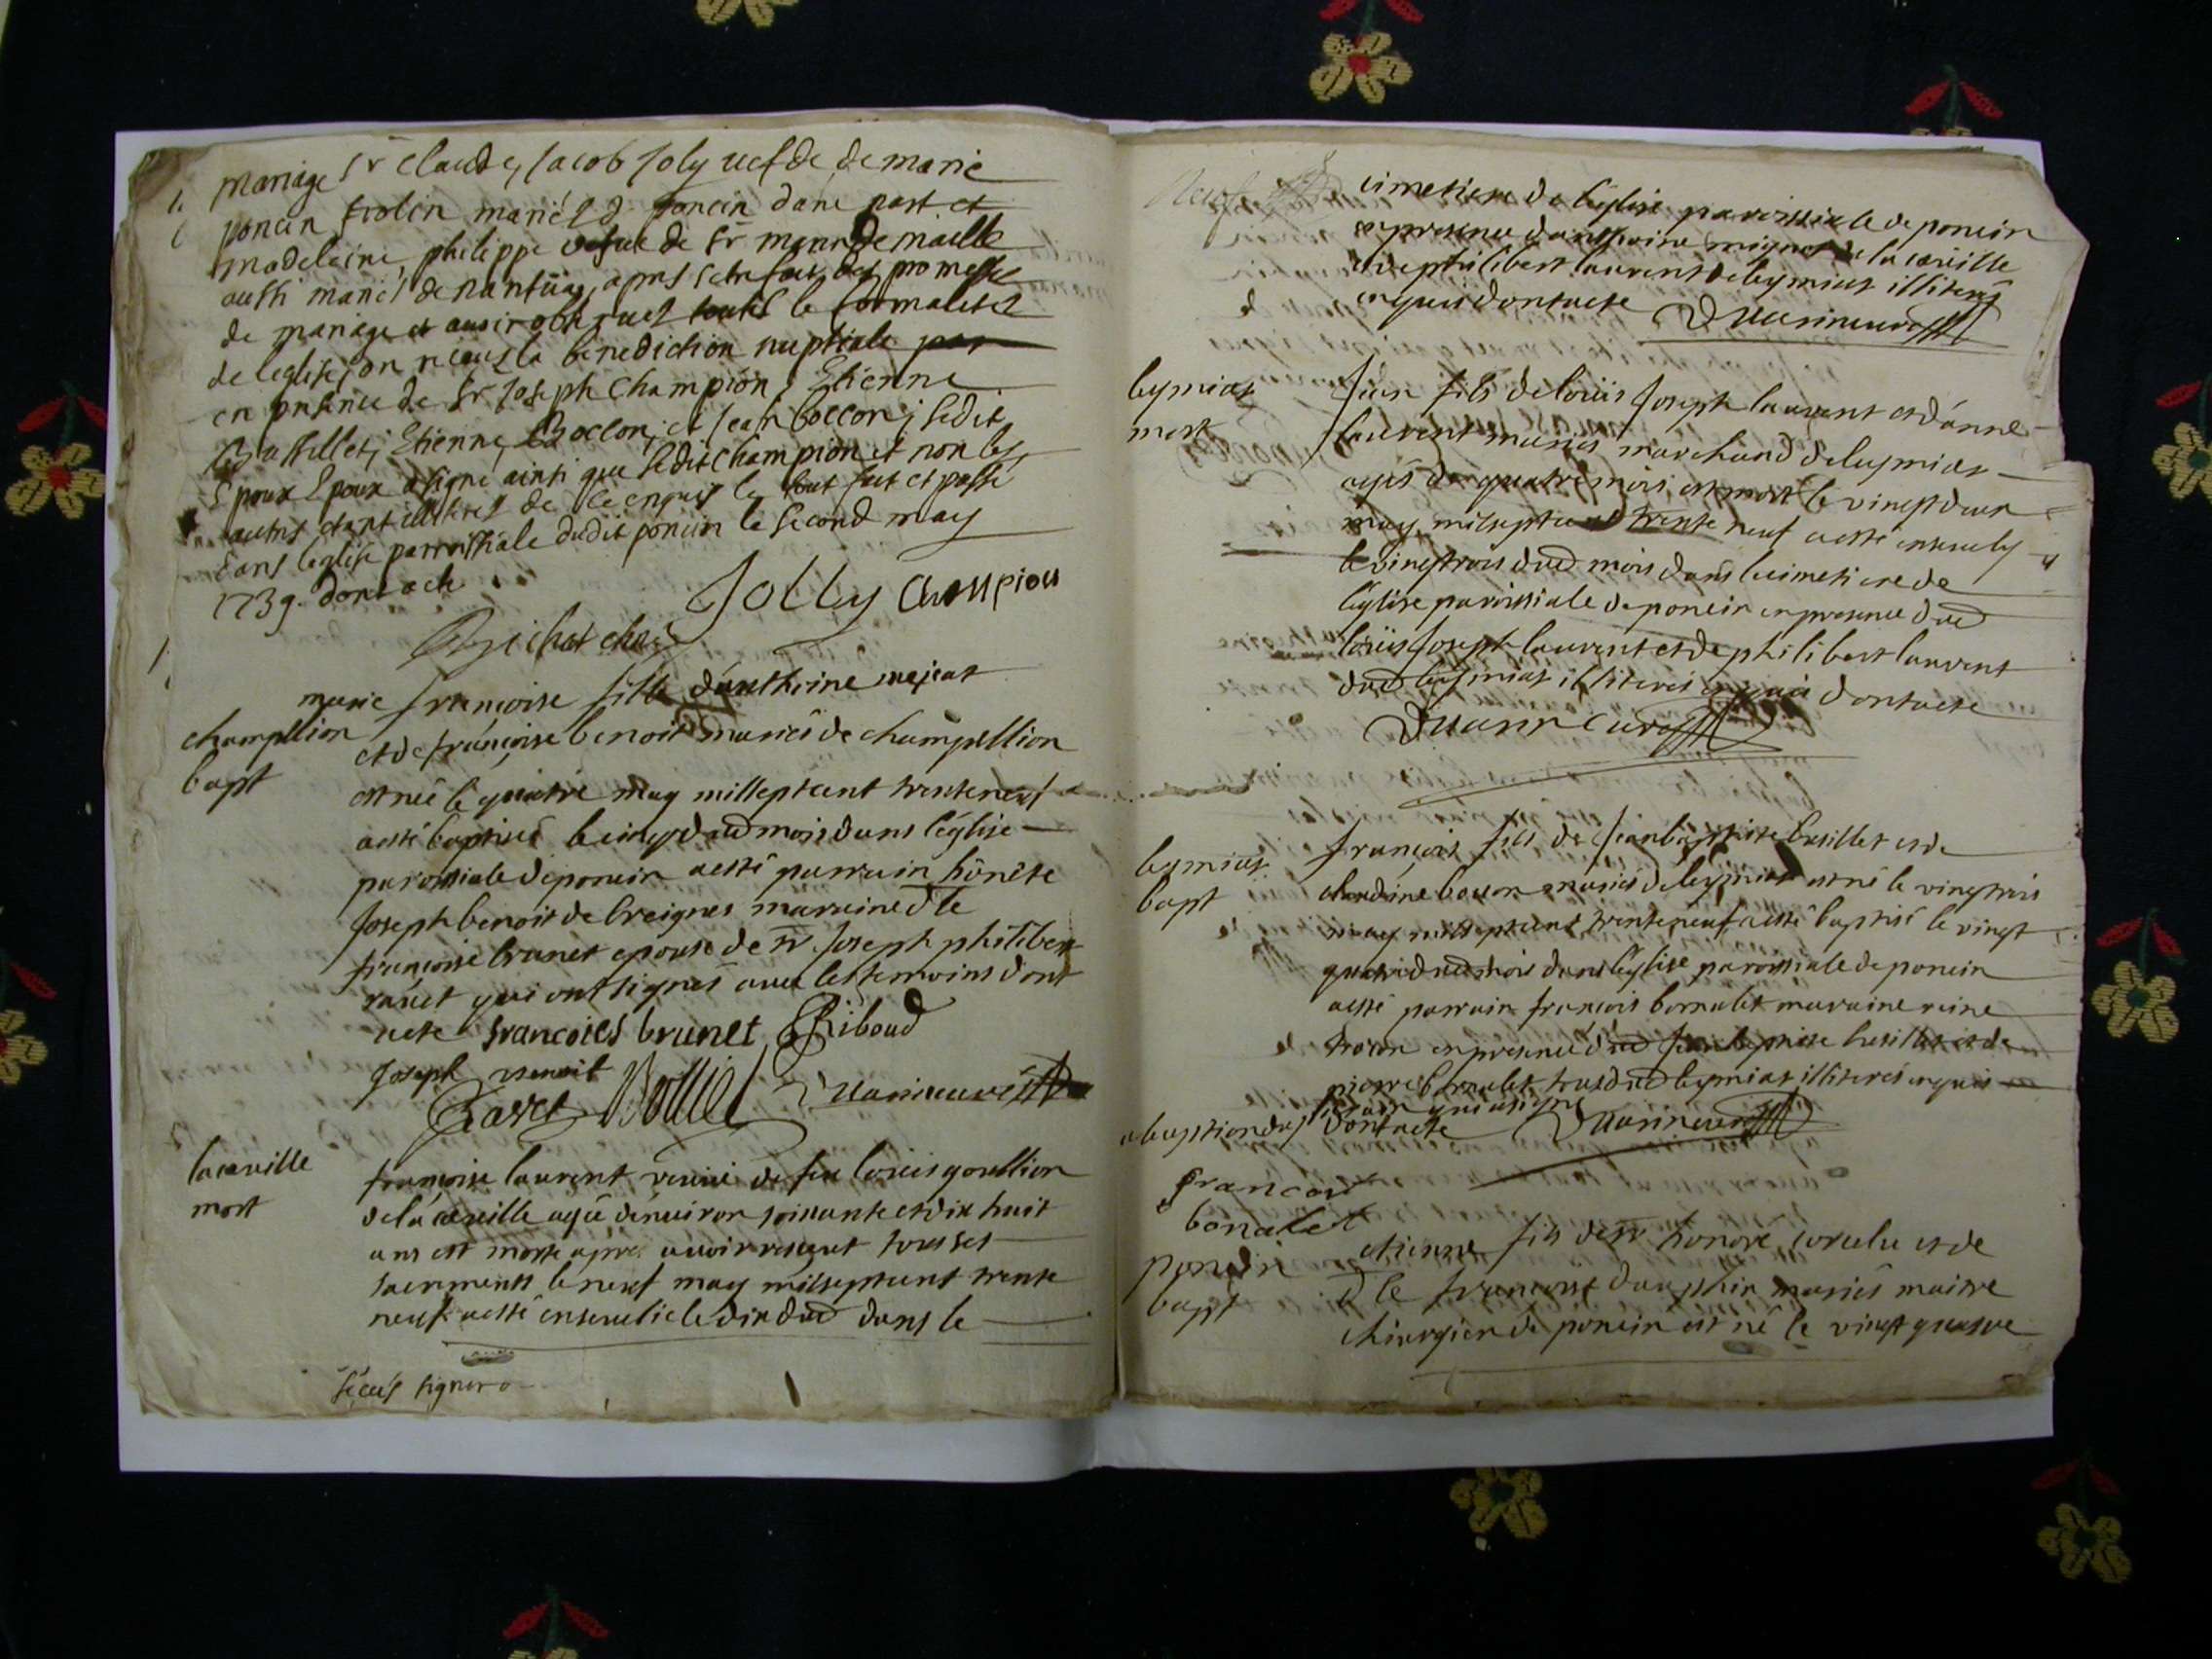 mariage Sr Claude, Jacob Joly uefde de marie
poncin frolin mariés d poncin dune part et
madeleine, philippe uefue de Sr mann De maille
aussi mariés de nantüa, apres des promesses
de mariage et toutes le formalités
de leglise, on la benediction nuptiale par
en presence de Sr Joseph Champion, Etienne
Bassillet, Etienne Boccon, et Jean boccon, ledit
Epoux a signé ainsi que ledit champion et non les
autres etant illiteres de ce enquis le tout fait et passé
dans leglise parroissiale dudit poncin le second may
1739. dont acte
Jolly Champion
Bichat
marie françoise fille danthoine mejeat
champellion et de françoise benoit mariés de champellion
bapt
est neé le quatre may millseptcent trenteneuf
aesté baptiseé le cinq dud mois dans léglise
paroissiale deponcin aesté parrain hônéte
Joseph benoit de breignes maraine dle
françoise brunet epouse de sr Joseph philibert
rauet qui ont signés avec les temoins dont
acte francoies brunet Riboud
Joseph benoit
Ravet Bolliet
lacueille
mort
françoise laurent veuue de feu loüis goullion
de la cueille agée dénuiron soixante et dix huit
ans est morte apres auoir reseut tous ses
sacrments le neuf may milseptcent trente
neuf aesté enseuelie le dix dud dans le
signer
cimetiere de léglise paroissiale de poncin
en presence danthoine mignot de la cueille
et de philibert laurent de leymiat illiterés
enquis dontacte
leymiat
mort
Jean fils de loüis Joseph laurent et dánne
laurent mariés marchand deleymiat
agés de quatre mois est mort le vingtdeux
may milseptcent trente neuf aesté enseuely
le vingtrois dud mois dans lecimetiere de
léglise paroissiale de poncin en presence dud
loüis Joseph laurent et de philibert laurent
dud leymiat illiterés enquis dontacte
leymiat
bapt
françois fils de Jeanbaptiste basillet et de
claudine bocon mariés deleymiat est né le vingtrois
may millseptcent trenteneuf aesté baptisé le vingt
quatre dud mois dans léglise paroissiale de poncin
aesté parrain françois bornalet maraine reine
bocon en presence dud Jean baptiste basillet et de
pierre bornalet tous dud leymiat illiterés enquis
a lexception du parrain qui a signé
dontacte
francois
bonalet
poncin
bapt
etienne fils de sr honoré et de
dle françoise dauphin mariés maitre
chirurgien de poncin est né le vingt quatre